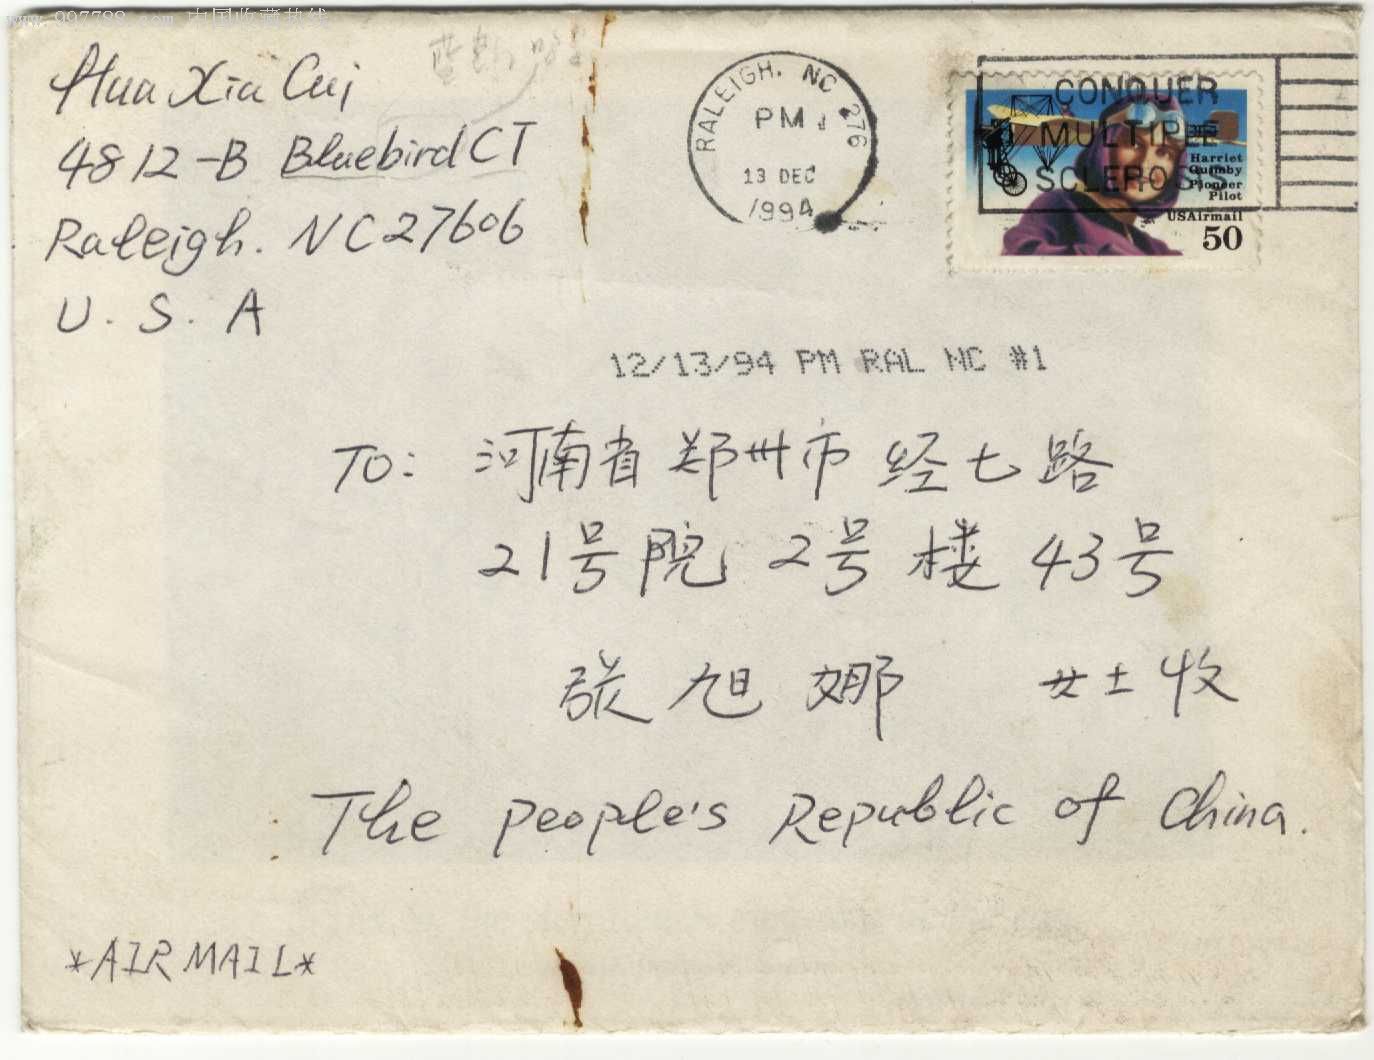 www.997788.com 中国收藏热线
Hua Xia Cui
4812-B Bluebird CT
Raleigh. NC 27606
U. S. A
RALEIGH, NC 276
PM
13 DEC
1994
CONQUER
MULTIPLE
SCLEROSIS
Harriet
Quimby
Pioneer
Pilot
USAirmail
50
12/13/94 PM RAL NC #1
TO: 河南省郑州市 经七路
21号院 2号楼 43号
张旭娜 女士收
The people's Republic of China.
*AIR MAIL*